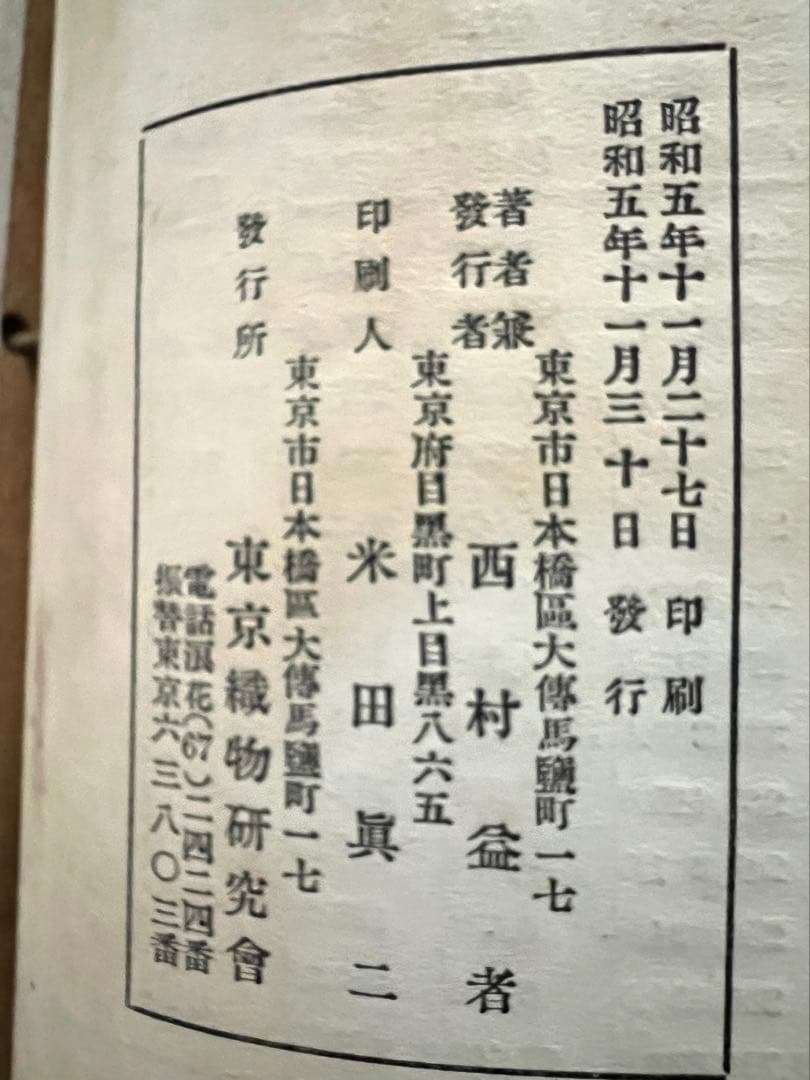 昭和五年十一月二十七日印刷
昭和五年十一月三十日發行
東京市日本橋區大傳馬鹽町一七
著者兼
發行者
西村益者
東京府目黑町上目黑八六五
印刷人
米田眞二
東京市日本橋區大傳馬鹽町一七
發行所
東京織物研究會
電話浪花(67)二四二四番
振替東京六三八〇三番